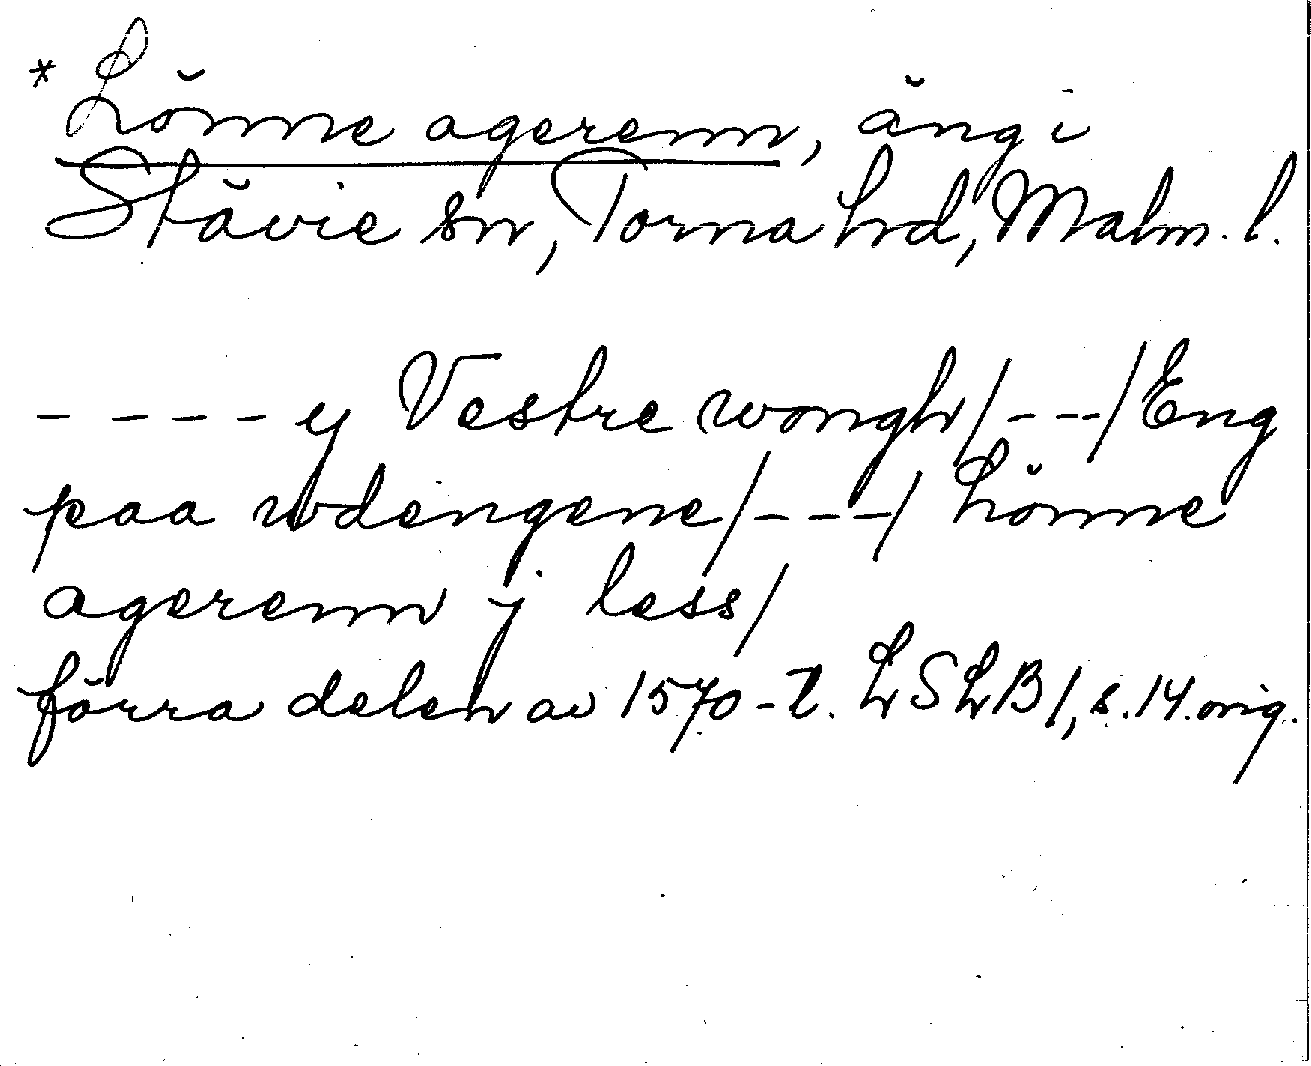 * Lönne agerenn, äng i
Stävie sn, Torna hd, Malm. l.
- - - - y Vestre wongh/---/Eng
paa wdengene/---/ Lönne
agerenn j less/
förra delen av 1570-t. LSLB 1, s. 14. orig.